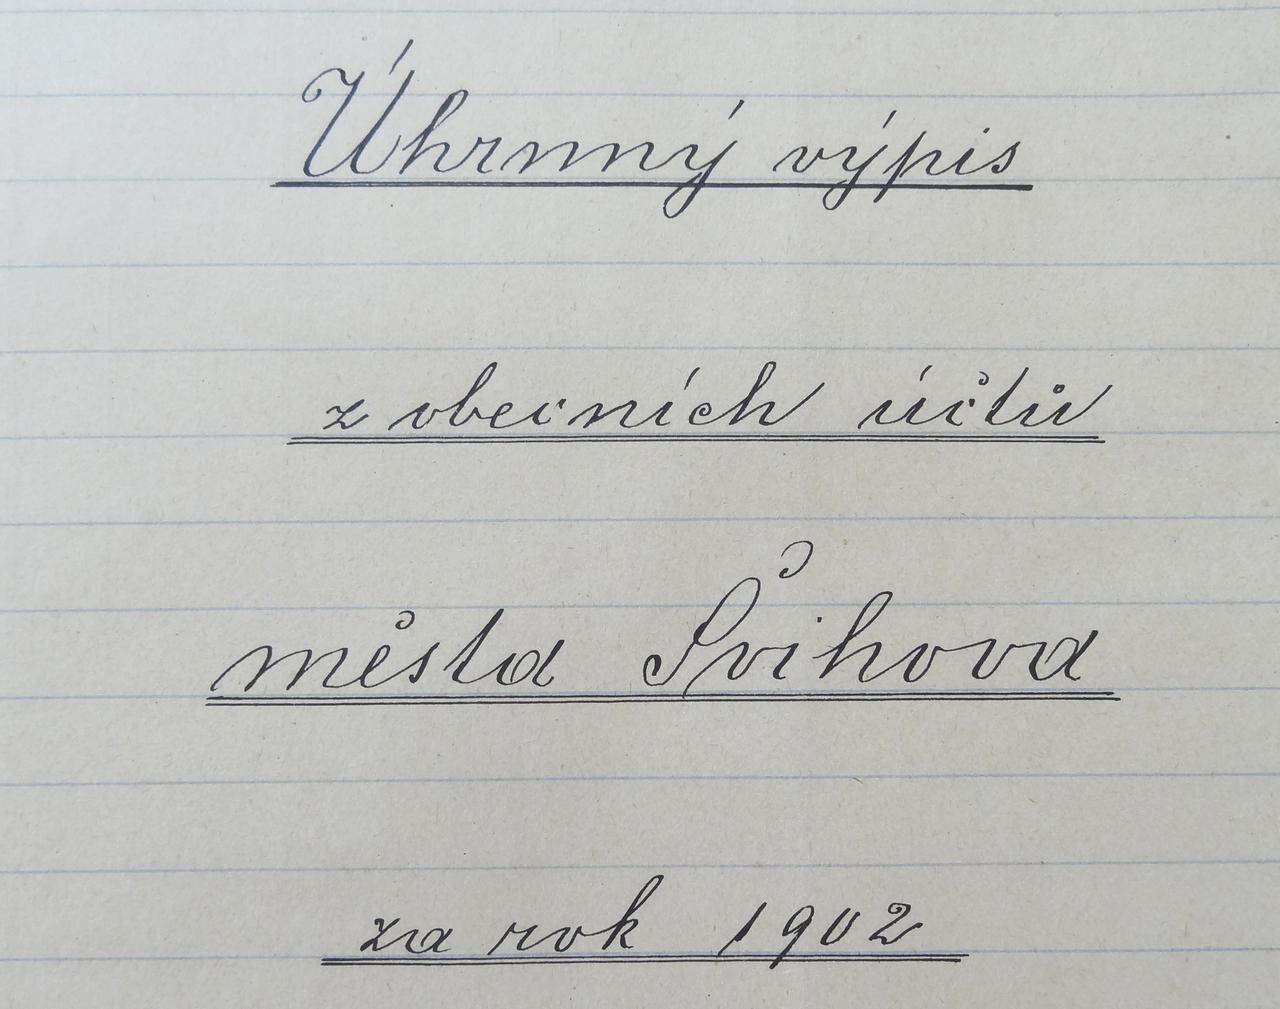 Úhrnný výpis
z obecních účtů
města Švihova
za rok 1902